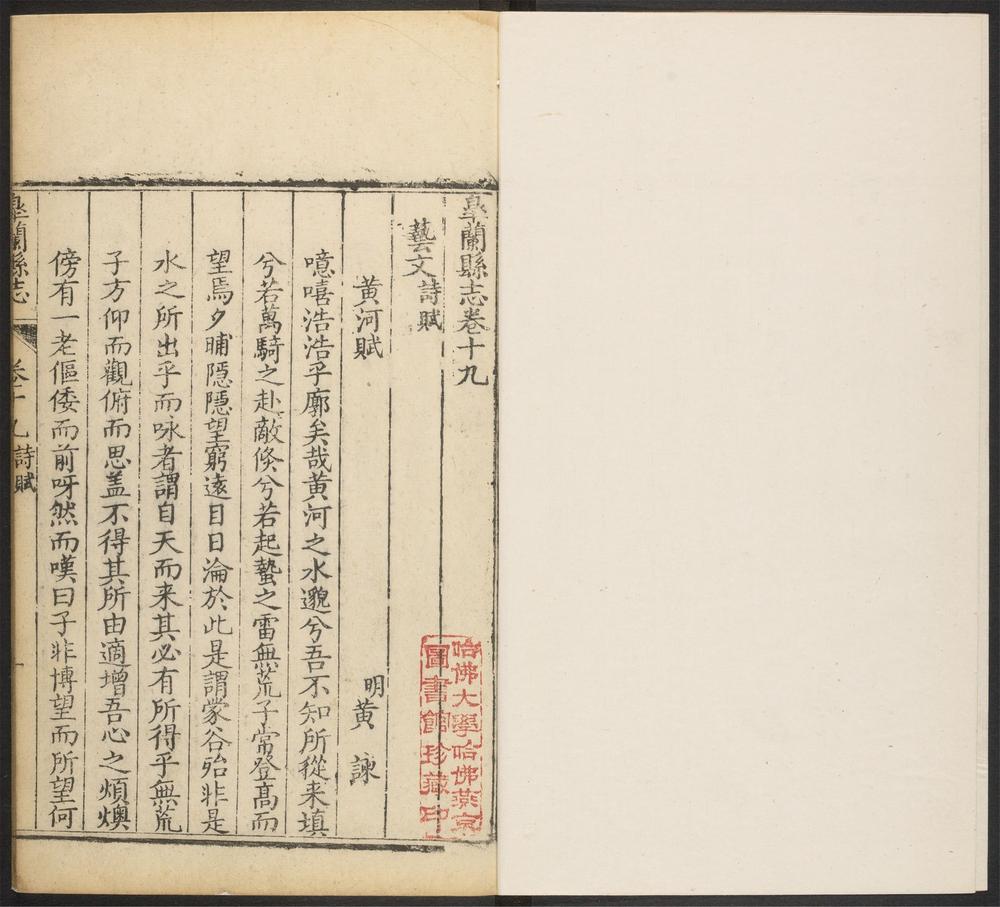 皋蘭縣志卷十九
藝文詩賦
黃河賦
明黃 諫
噫嘻浩浩乎廓矣哉黃河之水邈兮吾不知所從来填
兮若萬騎之赴敵倏兮若起蟄之雷無荒子常登高而
望焉夕晡隱隱望窮遠目日淪於此是謂蒙谷殆非是
水之所出乎而咏者謂自天而来其必有所得乎無荒
子方仰而觀俯而思盖不得其所由適增吾心之煩燠
傍有一老傴倭而前呀然而嘆曰子非博望而所望何
皋蘭縣志
卷十九詩賦
一
哈佛大學哈佛燕京
圖書館珍藏印